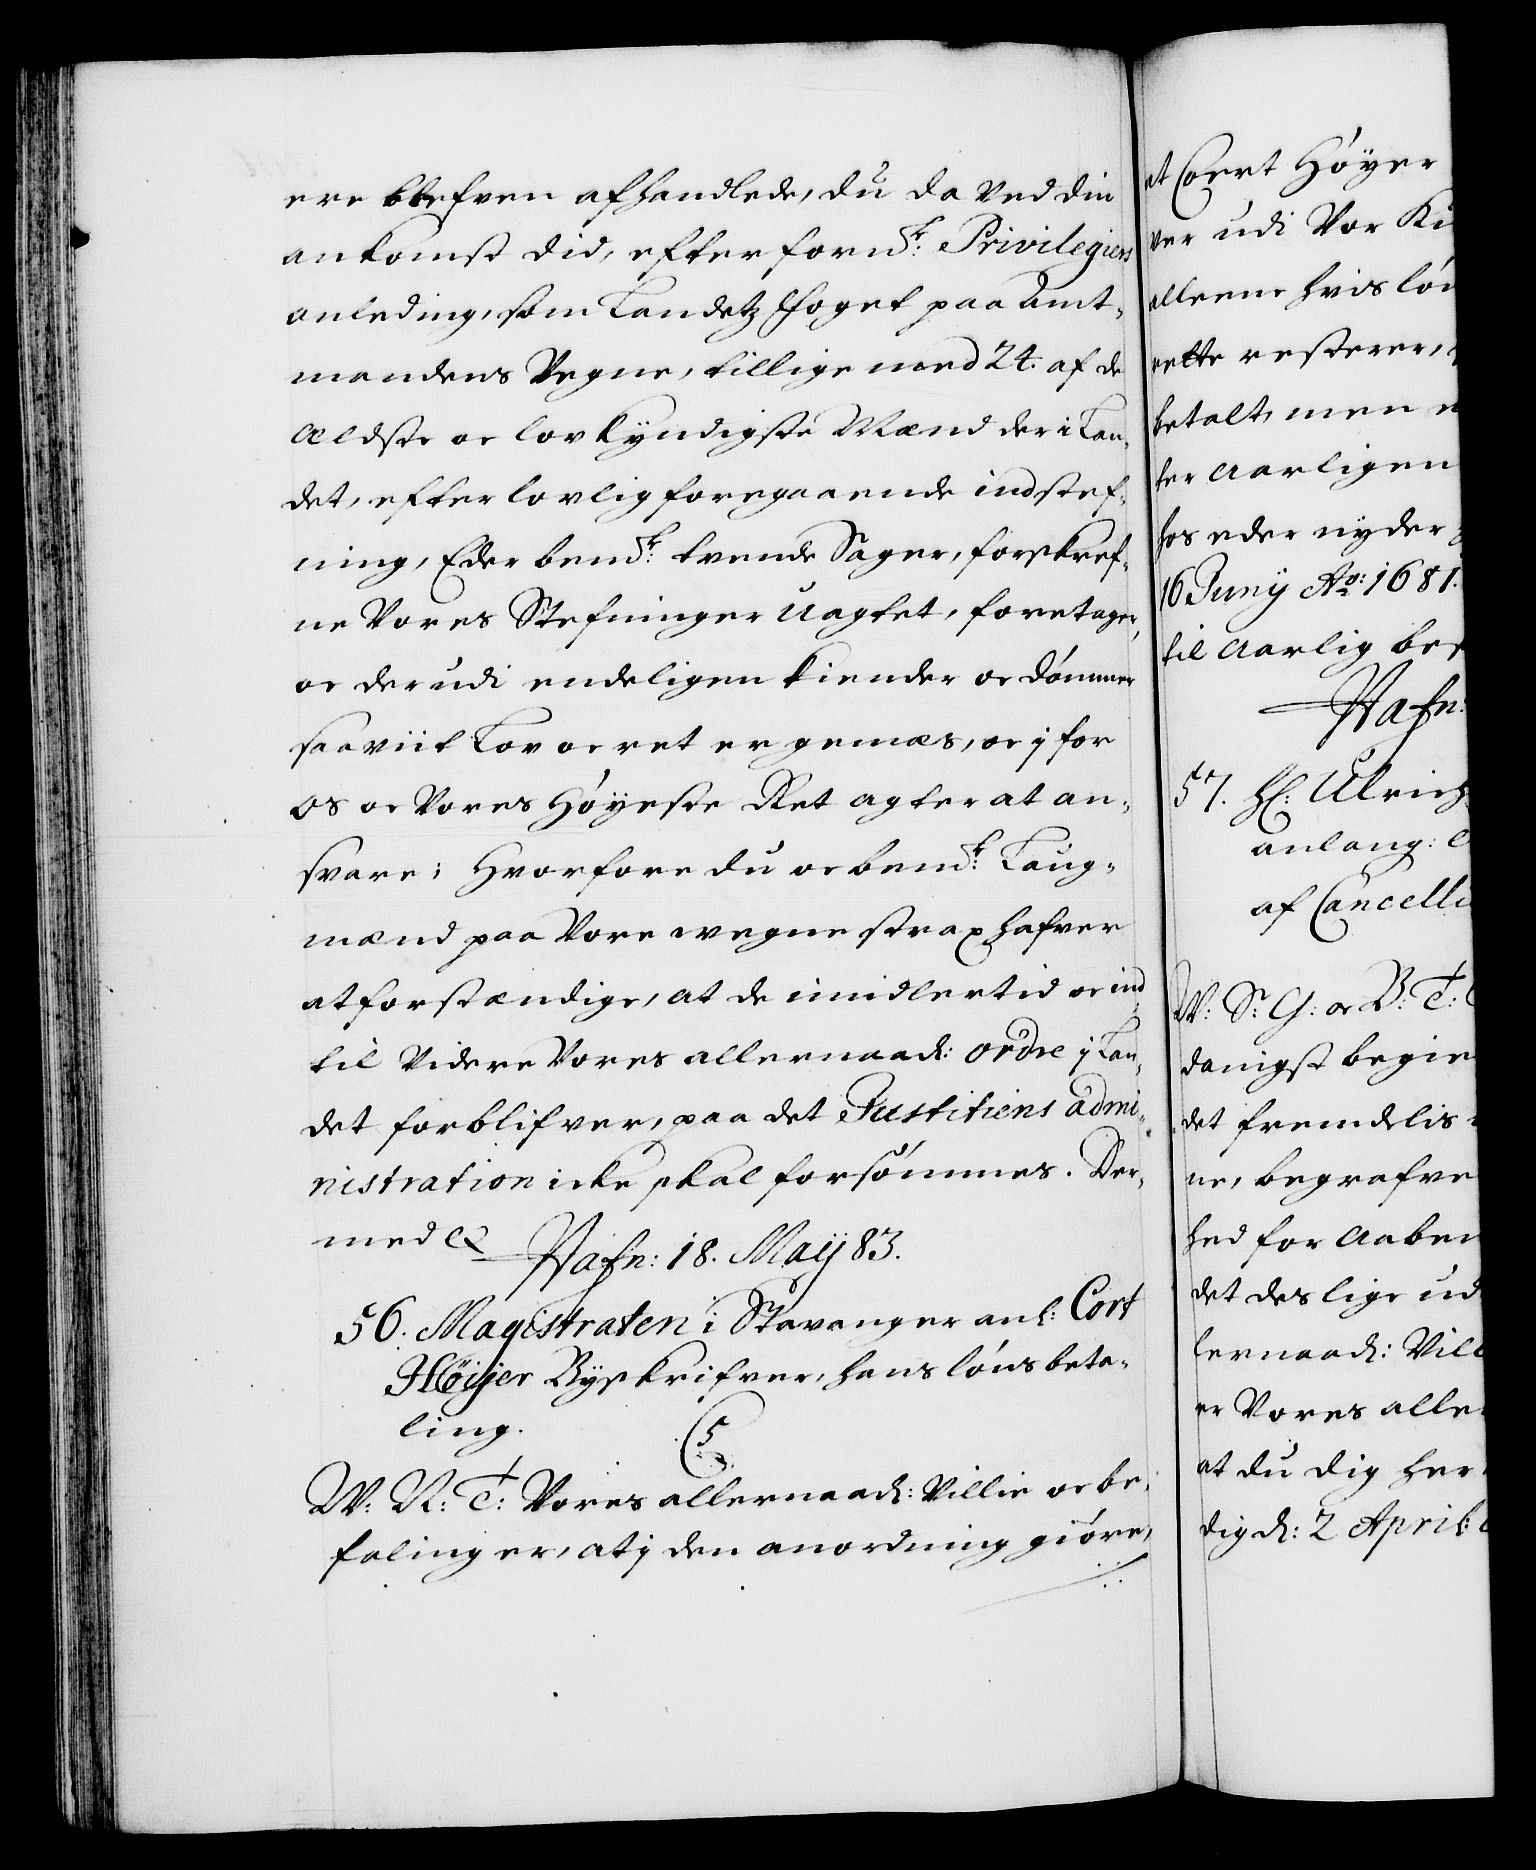 ere blefven afhandlede, du da Ved din
ankomst did, efter fornd.st Privilegiers
anleding, som Landetz Foget paa Amt-
mandens Vegne, tillige med 24. af de
Ældste oc lovkyndigste Mænd der i Lan-
det, efter lovlig foregaaende indstef-
ning, Eder bemd.te tvende Sager, forskref-
ne Vores Stefninger Uagtet, foretager,
oc derudi endeligen kiender oc dømmer
saaviit Lov oc ret er gemæs, oc j for
os oc Vores Høyeste Ret agter at an-
svare; Hvorfore du oc bemd.te Laug-
mænd paa Vore wegne strax hafver
at forstændige, at de imidlertid oc ind
til Videre Vores allernaad: ordre j Lan-
det forblifver, paa det Justitiens admi-
nistration icke skal forsømmes. Der-
med &
Hafn: 18. Maij 83.
56. Magistraten i Stavanger anl: Cort
Höijer Byskrifver, hans løns beta-
ling.
C5
W: N: T: Vores allernaad: Villie oc be-
faling er, at j den anordning giøre,
at Coert Høyer
ver udi Vor Ki
alleene hvis løn
rette resterer,
betalt, men
ter Aarligen
hos eder nyder
16 Junij Ao: 1681.
til Aarlig bes
Hafn:
57. Hl: Ulrich
anlang:
af Cancelli
W: S: G: oc B: T:
danigst begie
det fremdelis
ne, begrafve
hed for Aaben
det deslige ud
lernaad: Vill
er Vores aller
at du dig her
dig d: 2 April: